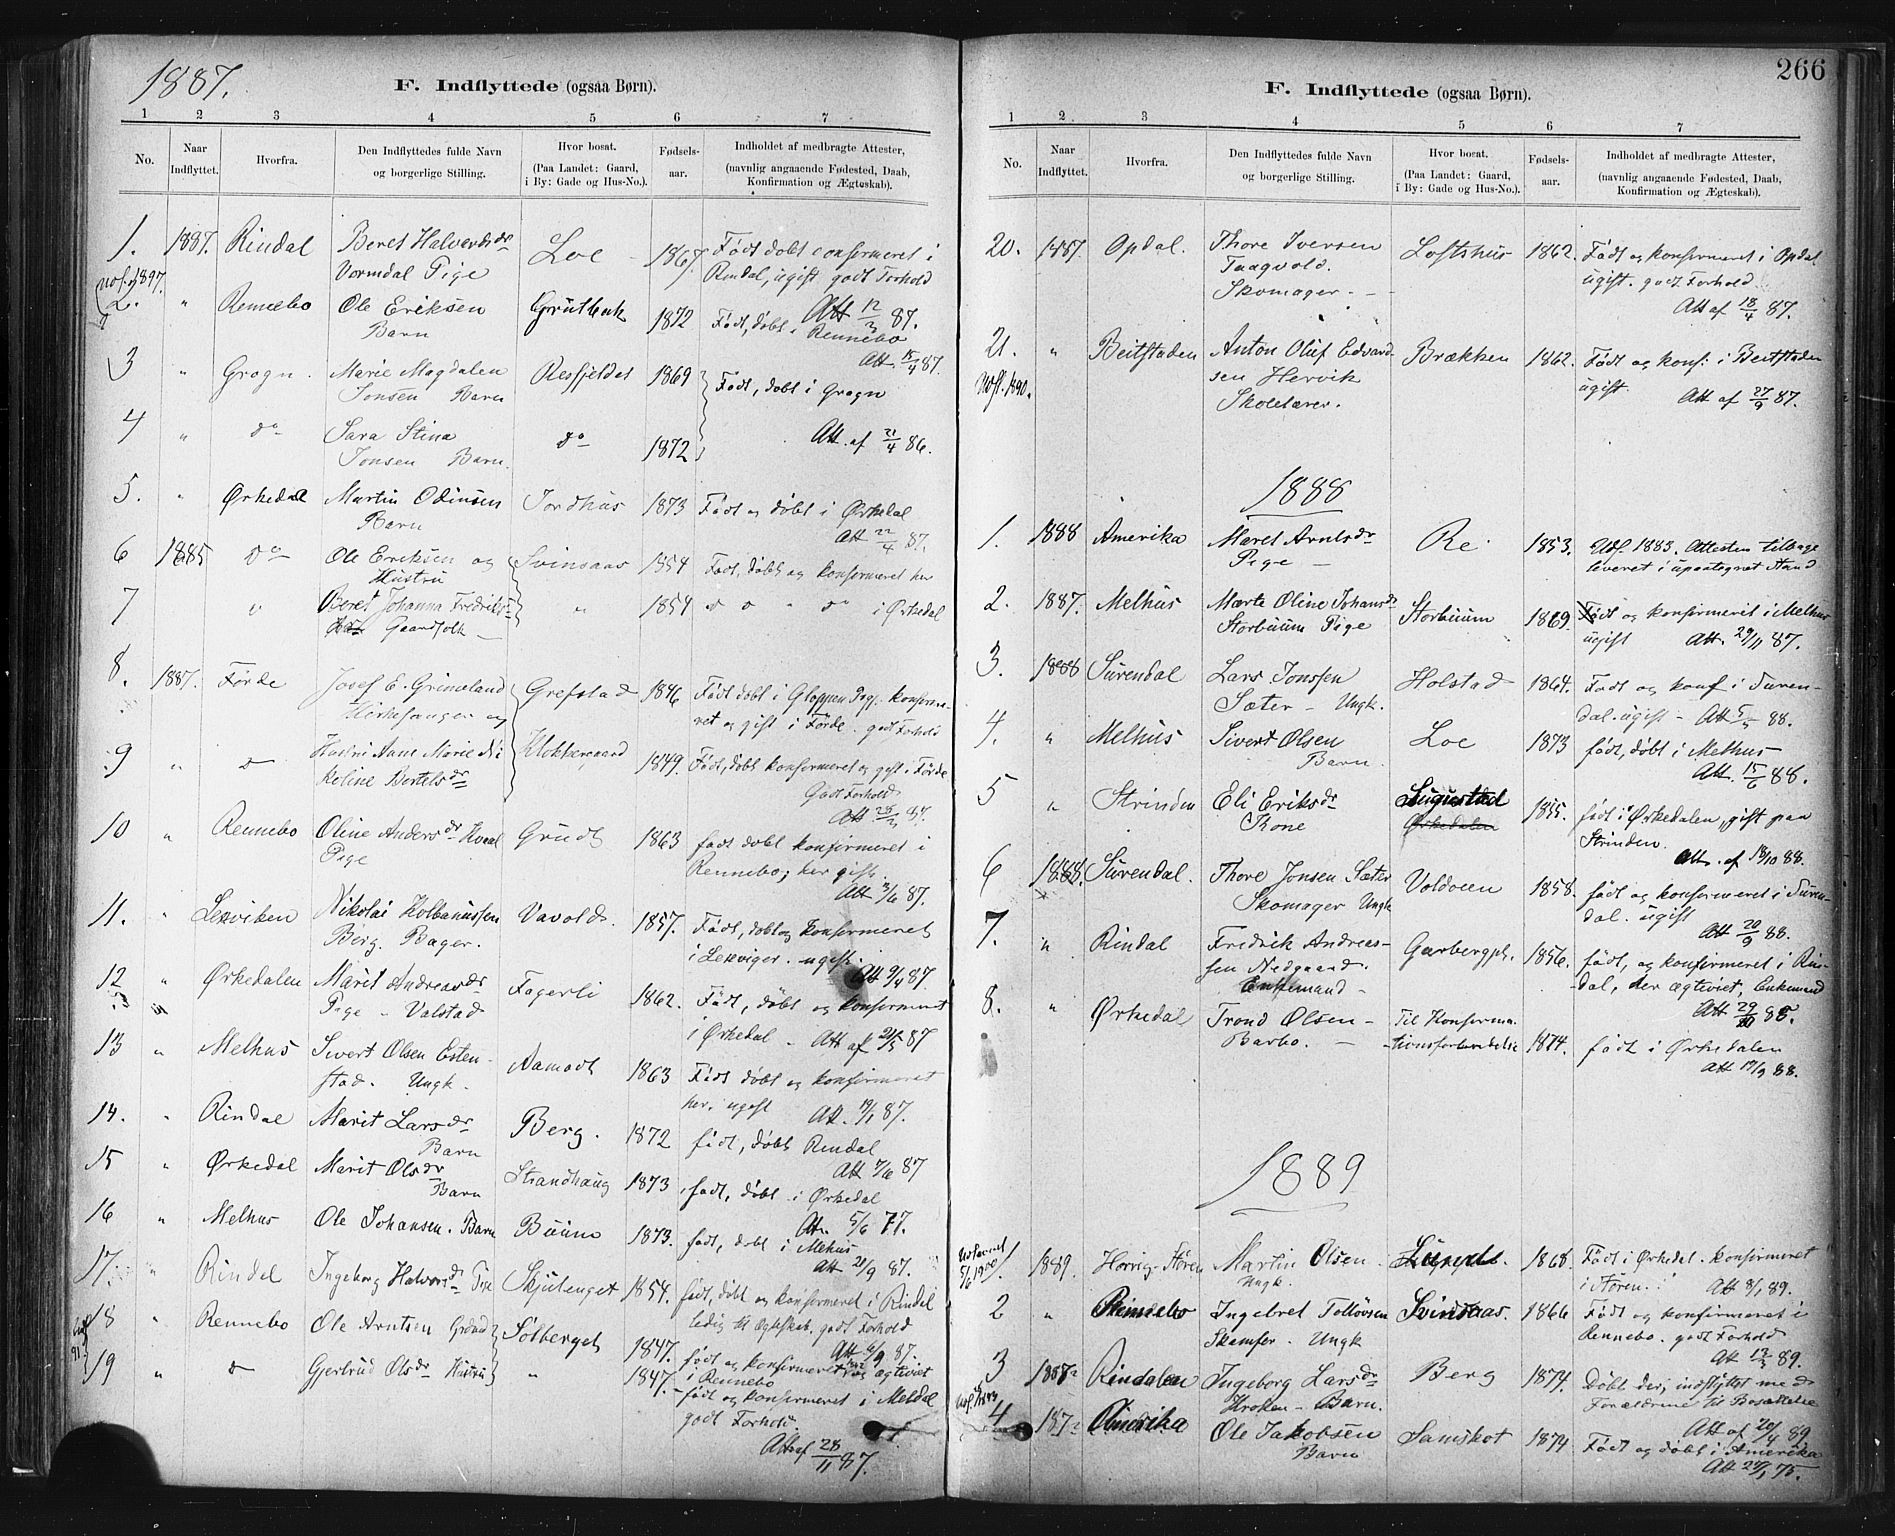 1887.
F. Indflyttede (ogsaa Børn).
1 2 3 4 5 6 7
No. Naar Indflyttet. Hvorfra. Den Indflyttedes fulde Navn og borgerlige Stilling. Hvor bosat. (Paa Landet: Gaard, i By: Gade og Hus-No.). Fødsels-aar. Indholdet af medbragte Attester, (navnlig angaaende Fødested, Daab, Konfirmation og Ægteskab).
1. 1887. Rindal Beret Halvordsdr Loe 1867. Født døbt confirmeret i
Vormdal Pige Rindal, ugift godt Forhold
Att 12/3 87.
2. " Rennebo Ole Eriksen 1872 Født, døbt i
Barn Rennebo
Att 15/4 87.
3 " Grogn. Marie Magdalen Resfjeldet 1869 Født, døbt i Grogn
Jonsen Barn
4 " do Sara Stina do 1872 Att. af 21/4 86.
Jonsen Barn.
5. " Ørkedal Martin Odinsen Jordhus 1873 Født og døbt i Ørkedal
Barn Att 22/4 87.
6 1885 do Ole Eriksen og Svinsaas 1854 Født, døbt og konfirmeret her
Hustru
7 " Beret Johanna Fredriksdr " 1854 do " do i Ørkedal
Gaardfolk
8. 1887. Førde Josef E. Grimeland Grefstad 1846 Født døbt i Gloppen Pgj. konfirme-
Kirkesanger og ret og gift i Førde. godt Forhold
9 " do Hustru Anne Marie Ni- Klokkergaard 1849. Født, døbt konfirmeret og gift i Førde
koline Bertelsdr Godt Forhold
Att 25/3 87.
10 " Rennebo Oline Andersdr Hoel Grudt 1863 født døbt konfirmeret i
Pige Rennebo; her gift.
Att 3/6 87.
11. " Lexviken Nikolai Kolbanussen Vavold 1857. Født, døbt og konfirmeret
Berg. Bager. i Lexviger. ugift.
Att 9/4 87.
12 " Ørkedalen Marit Andreasdr Fagerli 1862. Født, døbt og konfirmeret
Pige - Valstad i Ørkedal - Att af 21/5 87
13 " Melhus Sivert Olsen Esten- Aamodt 1863 Født døbt og konfirmeret
stad. Ungk. her. ugift Att. 19/1 87.
14. " Rindal Marit Larsdr Berg. 1872 født, døbt Rindal
Barn Att 7/6 87
15 " Ørkedal Marit Olsdr Strandhaug 1873 født, døbt i Ørkedal
Barn Att. 5/6 77.
16 " Melhus Ole Johansen. Barn Buum 1873. født, døbt i Mehus
Att 21/9 87.
17. " Rindal Ingeborg Halvorsdr Pige Skjutenget 1854. født, døbt og konfirmeret i Rindal
ledig til Ægteskab. godt Forhold
Att 6/9 87.
18 " Rennebo Ole Arntsen Solberget 1847. født og konfirmeret og ægteviet
i Rennebo
19 " do Gjertrud Olsdr Hustru " 1847. født og konfirmeret i Meldal
godt Forhold
Att af 28/11 87.
266
F. Indflyttede (ogsaa Børn).
1 2 3 4 5 6 7
No. Naar Indflyttet. Hvorfra. Den Indflyttedes fulde Navn og borgerlige Stilling. Hvor bosat. (Paa Landet: Gaard, i By: Gade og Hus-No.). Fødsels-aar. Indholdet af medbragte Attester, (navnlig angaaende Fødested, Daab, Konfirmation og Ægteskab).
20. 1887. Opdal. Thore Iversen Loftshus 1862. Født og konfirmeret i Opdal
Taagvold. ugift. godt Forhold
Skomager. - Att af 18/4 87.
21. " Beitstaden Anton Oluf Edvard- Brækken 1862. Født og konf. i Beitstaden
Udfl. 1890. sen Hervik ugift.
Skolelærer. Att af 27/9 87.
1888
1. 1888 Amerika Maret Arntsdr Re 1853. Udf. 1883. Attesten tilbage
Pige - leveret i upaategnet Stand
2. 1887. Melhus Marte Oline Johansdr Storbuum 1869. Født og konfirmeret i Melhus
Storbuum Pige ugift Att. 29/11 87.
3. 1888 Surendal Lars Jonssen Holstad 1864. Født og konf i Suren-
Sæter - Ungk. dal. ugift - Att 5/5 88.
4. " Melhus Sivert Olsen Loe 1873 født, døbt i Melhus
Barn Att. 15/6 88.
5 " Strinden Eli Eriksdr 1855. født i Ørkedalen, gift paa
Kone Ørkedalen Strinden.
Att. af 18/10 88.
6 1888. Surendal. Thore Jonsen Sæter Voldveen 1858. født og konfirmeret i Suren-
Skomager Ungk dal. ugift
Att 20/9 88.
7. " Rindal Fredrik Andreas- Garbergpl. 1856. født, og konfirmeret i Rin-
sen Nedgaard. dal, der ægteviet, Enkemand
Enkemand - Att 29/10 88.
8. " Ørkedal Trond Olsen - Til Konfirma- 1874. født i Ørkedalen
Barbo. - tionsforberedelse Att 19/9 88.
1889
1. 1889. Horrig-Støren Martin Olsen Lunde. 1868. Født i Ørkedal. konfirmeret
Ungk. i Støren. Att 8/1 89.
2 " Rennebo Ingebret Tollovsen Svindsaas. 1866 Født og konfirmeret i
Skamfer. Ungk Rennebo. godt Forhold
Att 12/3 89.
3 1887 Rindalen Ingeborg Larsdr Berg 1874. Døbt der, indflyttet med
Kroken - Barn. Forældrene til Bosættelse
Att af 20/4 89
4 187 Amerika Ole Jakobsen Samskot 1874 Født og døbt i Amerika
Barn Att 27/1 75.